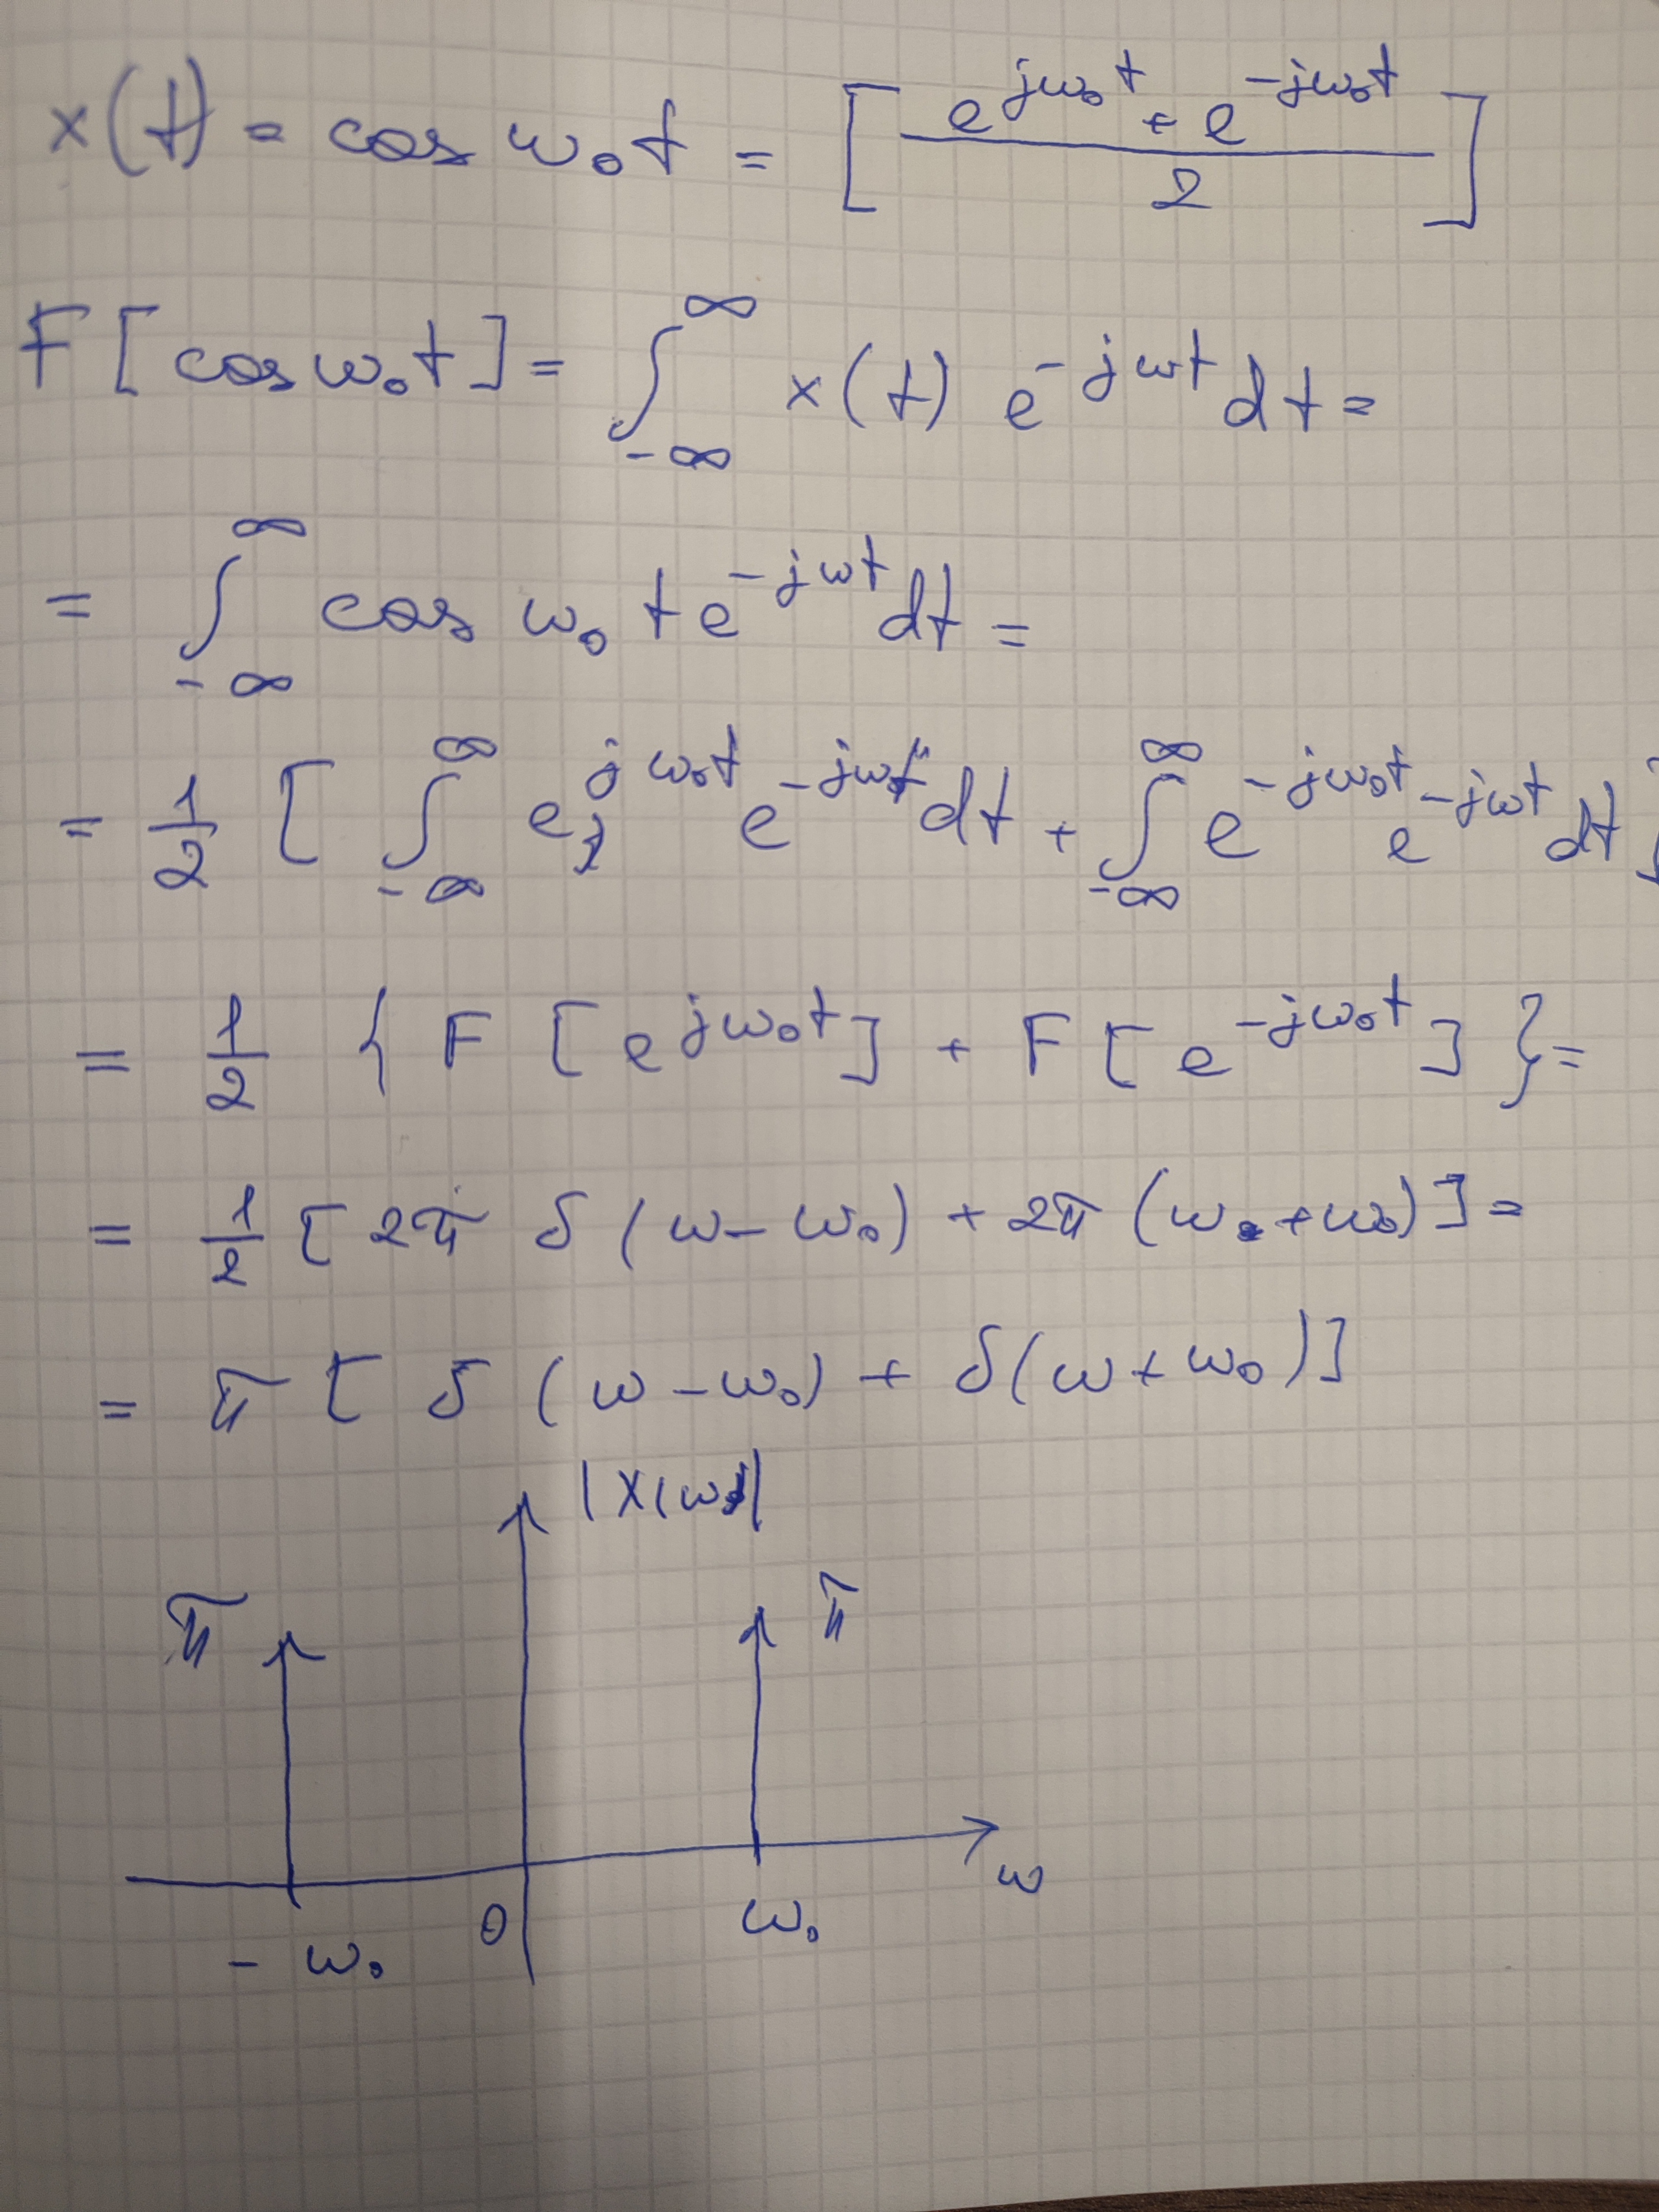 x(t) = cos ω₀t = [ (e^{jω₀t} + e^{-jω₀t}) / 2 ]
F[cos ω₀t] = ∫_{-∞}^{∞} x(t) e^{-jωt} dt =
= ∫_{-∞}^{∞} cos ω₀ t e^{-jωt} dt =
= 1/2 [ ∫_{-∞}^{∞} e^{jω₀t} e^{-jωt} dt + ∫_{-∞}^{∞} e^{-jω₀t} e^{-jωt} dt ]
= 1/2 { F[e^{jω₀t}] + F[e^{-jω₀t}] } =
= 1/2 [2π δ(ω - ω₀) + 2π (ω + ω₀)] =
= π [δ(ω - ω₀) + δ(ω + ω₀)]
|X(ω)|
π π
ω
- ω₀ 0 ω₀